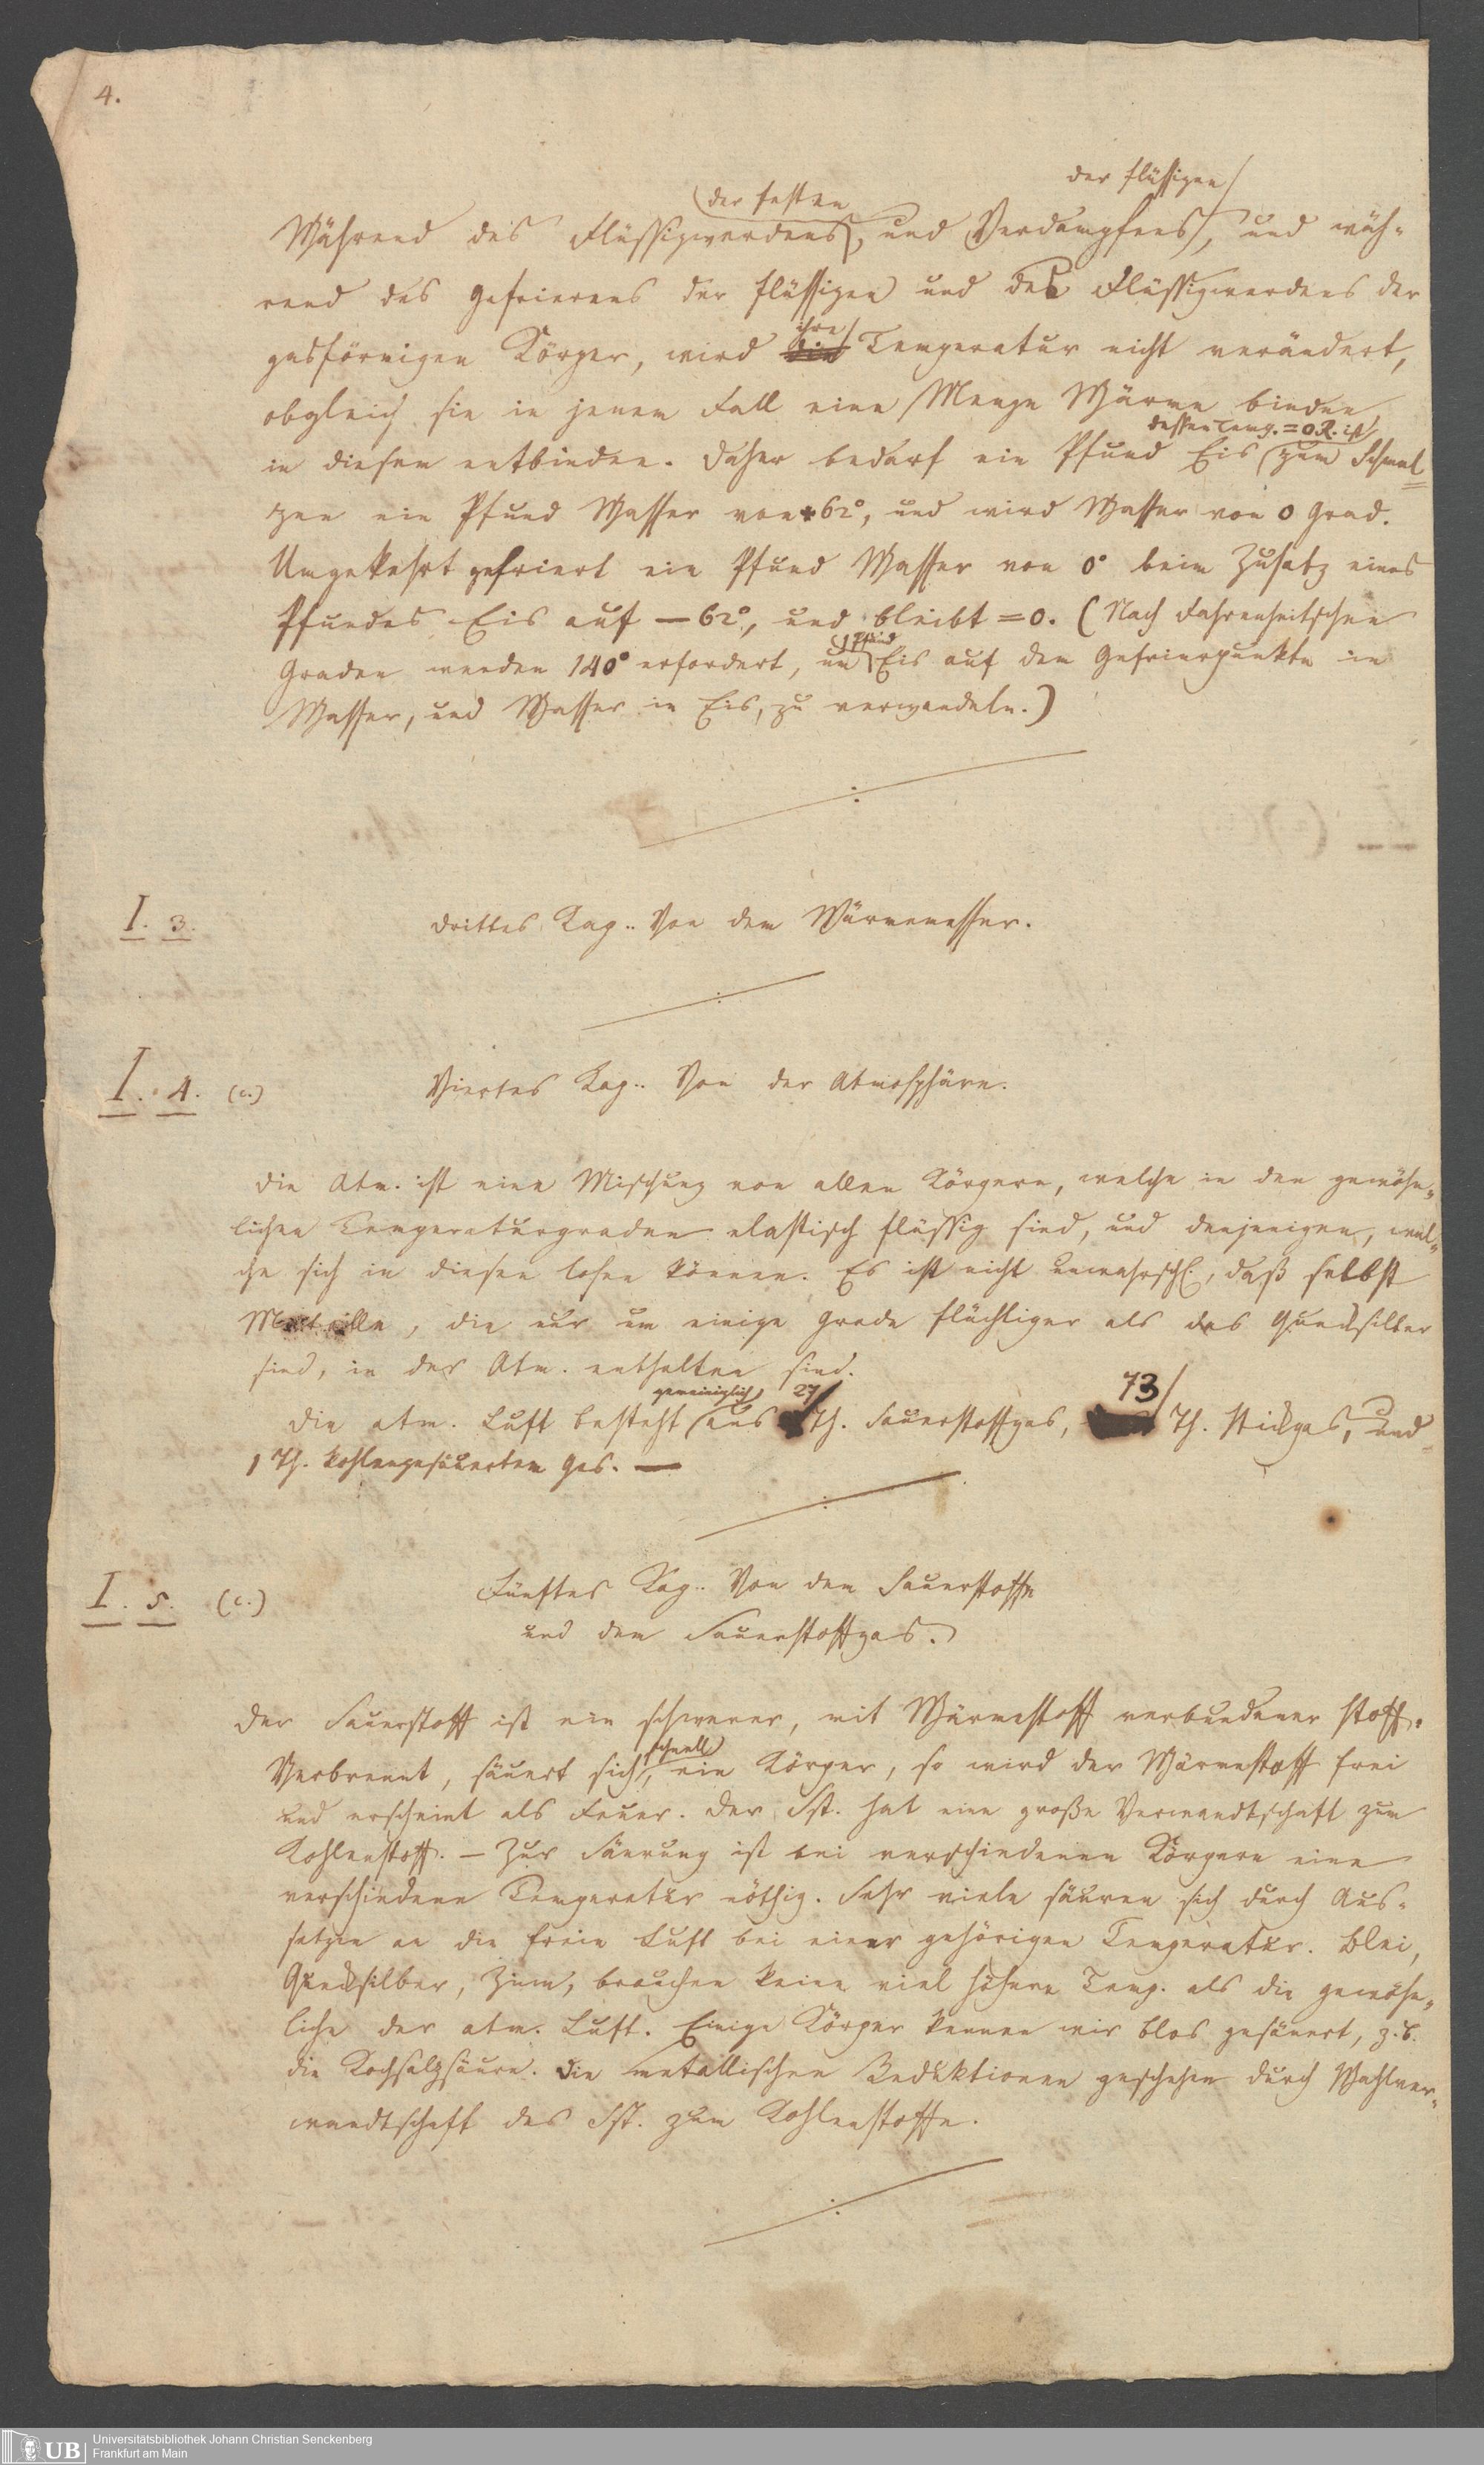 4.
der flüssigen
der festen
Während des Flüssigwerdens, und Verdampfens, und wäh-
rend des Gefrierens der flüssigen und des Flüssigwerdens der
ihre
gasförmigen Körper, wird die Temperatur nicht verändert,
obgleich sie in jenem Fall eine Menge Wärme binden,
dessen Temp. = 0 R. ist
in diesem entbinden. Daher bedarf ein Pfund Eis zum Schmel-
zen ein Pfund Wasser von + 62°, und wird Wasser von 0 Grad.
Umgekehrt gefriert ein Pfund Wasser von 0° beim Zusatz eines
Pfundes Eis auf — 62°, und bleibt = 0. (Nach Fahrenheitschen
1 Pfund
Graden werden 140° erfordert, um Eis auf dem Gefrierpunkte in
Wasser, und Wasser in Eis, zu verwandeln.)
I. 3. Drittes Kap.. Von dem Wärmemesser.
I. 4. (c.) Viertes Kap.. Von der Atmosphäre.
Die Atm. ist eine Mischung von allen Körpern, welche in den gewöhn-
lichen Temperaturgraden elastisch flüssig sind, und denjenigen, wel-
che sich in diesen lösen können. Es ist nicht unwahrschl., daß selbst
Metalle, die nur um einige Grade flüchtiger als das Quecksilber
sind, in der Atm. enthalten sind.
gemeiniglich 27 73
Die atm. Luft besteht aus Th. Sauerstoffgas, Th. Stickgas, und
1 Th. kohlengesäuertem Gas. —
I. 5. (c.) Fünftes Kap.. Von dem Sauerstoffe
und dem Sauerstoffgas.
Der Sauerstoff ist ein schwerer, mit Wärmestoff verbundener Stoff.
schnell
Verbrennt, säuert sich, ein Körper, so wird der Wärmestoff frei
und erscheint als Feuer. Der Sst. hat eine große Verwandtschaft zum
Kohlenstoff. — Zur Säurung ist bei verschiedenen Körpern eine
verschiedene Temperatur nöthig. Sehr viele säuren sich durch Aus-
setzen an die freie Luft bei einer gehörigen Temperatur. Blei,
Quecksilber, Zinn, brauchen keine viel höhere Temp. als die gewöhn-
liche der atm. Luft. Einige Körper kennen wir blos gesäuert, z. B.
die Kochsalzsäure. Die metallischen Reduktionen geschehen durch Wahlver-
wandtschaft des Sst. zum Kohlenstoffe.
UB Universitätsbibliothek Johann Christian Senckenberg
Frankfurt am Main